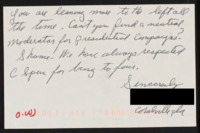 You are leaning more to the left all
the time. Can't you find a neutral
moderator for presidential campaigns?
Shame! We have always respected
C Span for being so fair.
Sincerely
O.W)